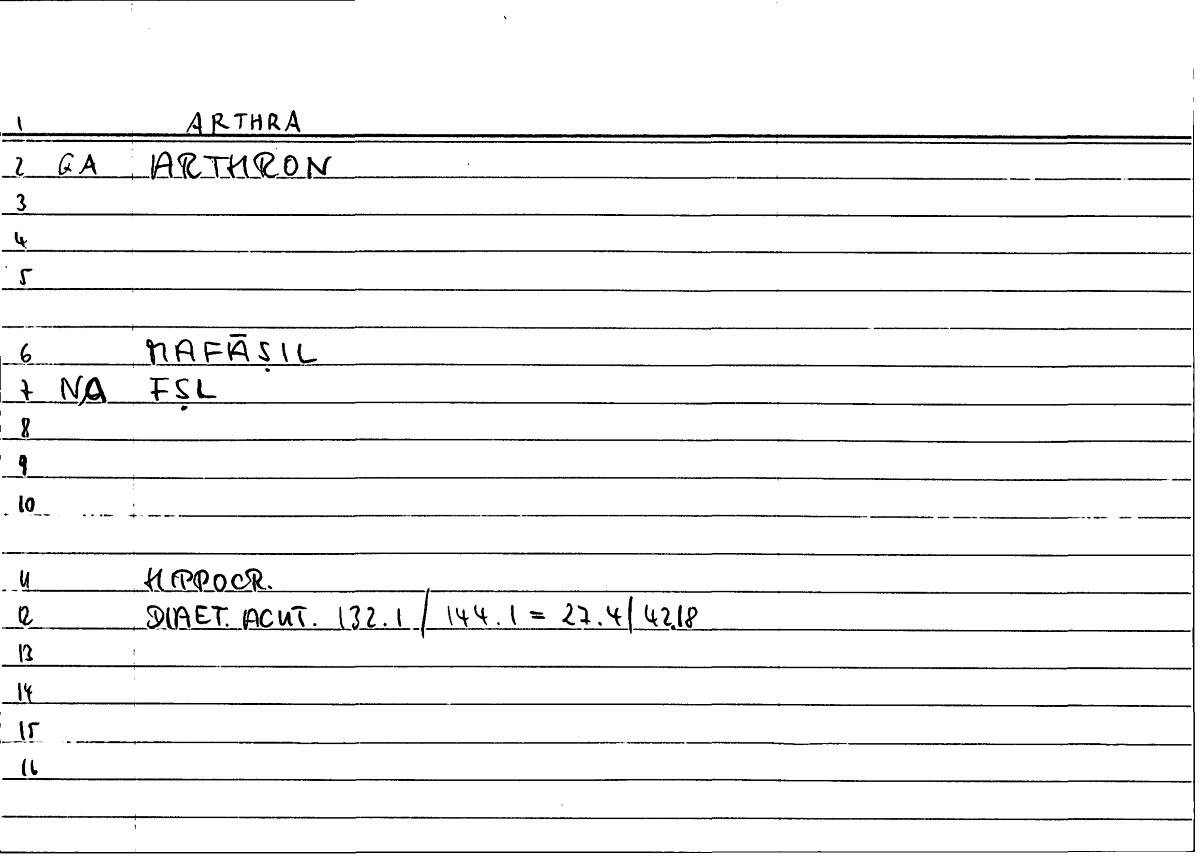 1 ARTHRA
2 GA ARTHRON
3
4
5
6 MAFĀṢIL
7 NA FṢL
8
9
10
11 HIPPOCR.
12 DIAET. ACUT. 132.1 / 144.1 = 27.4 / 42.18
13
14
15
16